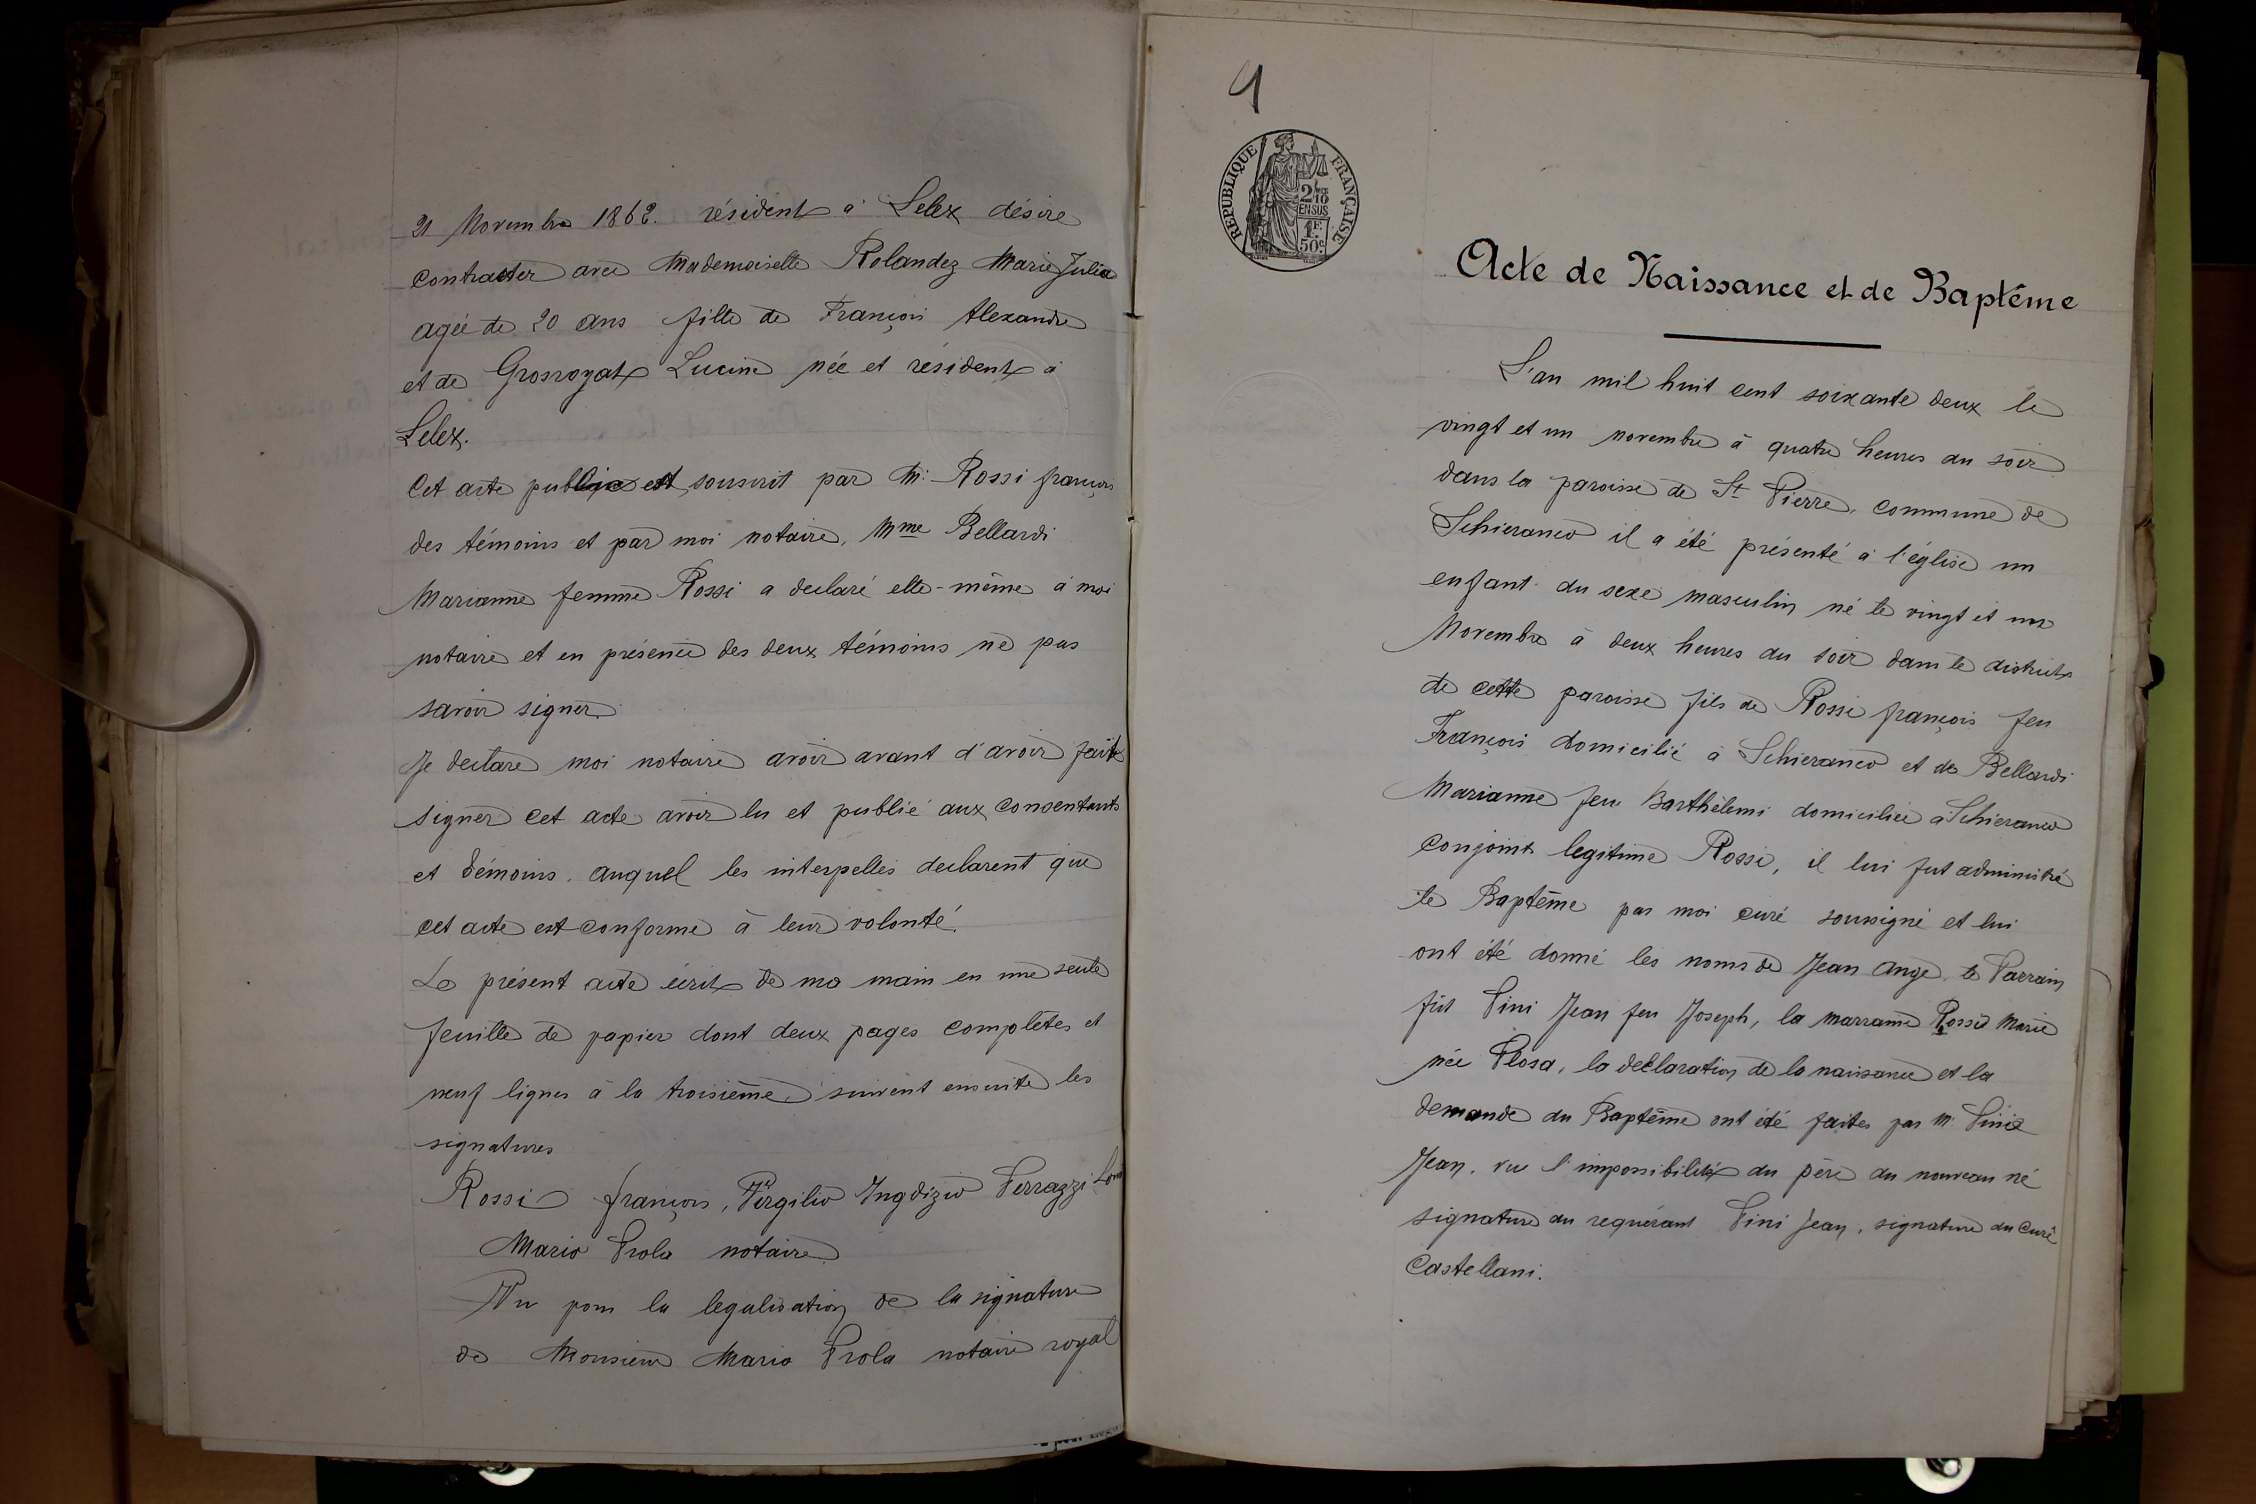 21 Novembre 1862. résident à Lelex désire
contracter avec Mademoiselle Rolandez Marie Julia
agée de 20 ans fille de François Alexandre
et de Grosroyat Lucine née et résident à
Lelex.
Cet acte public est souscrit par Mr. Rossi françois
des témoins et par moi notaire, Mme Bellardi
Marianne femme Rossi a declaré elle-même à moi
notaire et en présence des deux témoins ne pas
savoir signer.
Je declare moi notaire avoir avant d'avoir fait
signer cet acte avoir lu et publié aux consentants
et témoins. auquel les interpellés declarent que
cet acte est conforme à leur volonté.
Le présent acte écrit de ma main en une seule
feuille de papier dont deux pages complètes et
neuf lignes à la troisième, suivent ensuite les
signatures
Rossi françois, Virgilio Ferrazzi
Mario Prola notaire
Vu pour la legalisation de la signature
de Monsieur Mario Prola notaire royal
4
REPUBLIQUE FRANÇAISE
2/10
EN SUS
1F.
50c
Acte de Naissance et de Baptême
L'an mil huit cent soixante deux le
vingt et un novembre à quatre heures du soir
dans la paroisse de St Pierre, commune de
Schieranco il a été présenté à l'église un
enfant du sexe masculin né le vingt et un
Novembre à deux heures du soir dans le district
de cette paroisse fils de Rossi françois feu
François domicilié à Schieranco et de Bellardi
Marianne feu Barthélemi domiciliée à Schieranco
conjoint legitime Rossi, il lui fut administré
le Baptême par moi curé soussigné et lui
ont été donné les noms de Jean Ange. le Parrain
fut Pini Jean feu Joseph, la marraine Rossi Marie
née Plosa, la declaration de la naissance et la
demande du Baptême ont été faites par Mr Pini
Jean. vu l'impossibilité du père du nouveau né
signature du requérant Pini Jean, signature du curé
Castellani.